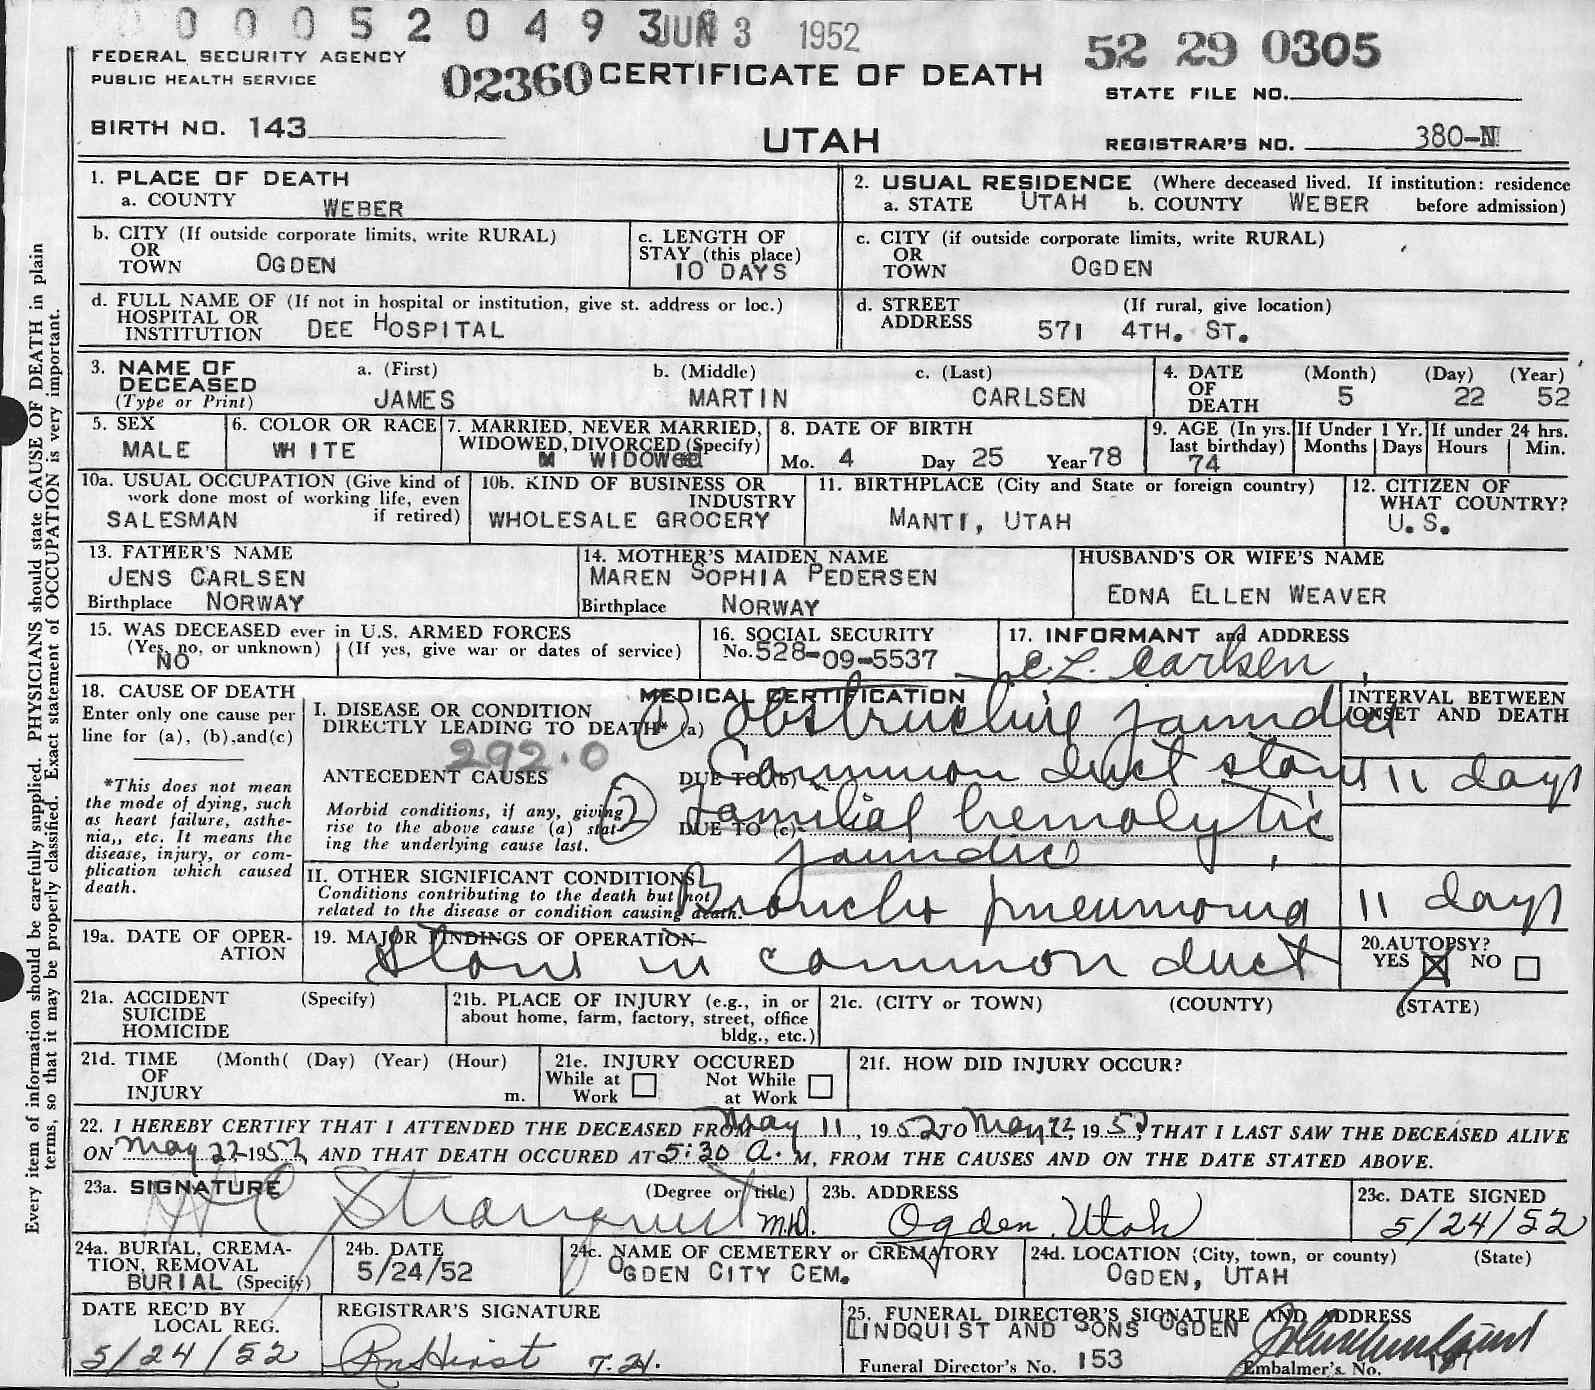 0 0 0 5 2 0 4 9 3 JUN 3 1952
FEDERAL SECURITY AGENCY
PUBLIC HEALTH SERVICE
02360 CERTIFICATE OF DEATH
52 29 0305
STATE FILE NO.
BIRTH NO. 143
UTAH
REGISTRAR'S NO. 380-N
1. PLACE OF DEATH
a. COUNTY WEBER
2. USUAL RESIDENCE (Where deceased lived. If institution: residence
a. STATE UTAH b. COUNTY WEBER before admission)
b. CITY (If outside corporate limits, write RURAL)
OR
TOWN OGDEN
c. LENGTH OF
STAY (this place)
10 DAYS
c. CITY (if outside corporate limits, write RURAL)
OR
TOWN OGDEN
d. FULL NAME OF (If not in hospital or institution, give st. address or loc.)
HOSPITAL OR
INSTITUTION DEE HOSPITAL
d. STREET (If rural, give location)
ADDRESS 571 4TH. ST.
3. NAME OF
DECEASED
(Type or Print)
a. (First) b. (Middle) c. (Last)
JAMES MARTIN CARLSEN
4. DATE (Month) (Day) (Year)
OF
DEATH 5 22 52
5. SEX
MALE
6. COLOR OR RACE
WHITE
7. MARRIED, NEVER MARRIED,
WIDOWED, DIVORCED (Specify)
WIDOWED
8. DATE OF BIRTH
Mo. 4 Day 25 Year 78
9. AGE (In yrs.
last birthday)
74
If Under 1 Yr.
Months Days
If under 24 hrs.
Hours Min.
10a. USUAL OCCUPATION (Give kind of
work done most of working life, even
SALESMAN if retired)
10b. KIND OF BUSINESS OR
INDUSTRY
WHOLESALE GROCERY
11. BIRTHPLACE (City and State or foreign country)
MANTI, UTAH
12. CITIZEN OF
WHAT COUNTRY?
U. S.
13. FATHER'S NAME
JENS CARLSEN
Birthplace NORWAY
14. MOTHER'S MAIDEN NAME
MAREN SOPHIA PEDERSEN
Birthplace NORWAY
HUSBAND'S OR WIFE'S NAME
EDNA ELLEN WEAVER
15. WAS DECEASED ever in U.S. ARMED FORCES
(Yes, no, or unknown) (If yes, give war or dates of service)
NO
16. SOCIAL SECURITY
No. 528-09-5537
17. INFORMANT and ADDRESS
C. L. Carlsen
18. CAUSE OF DEATH
Enter only one cause per
line for (a), (b), and (c)
*This does not mean
the mode of dying, such
as heart failure, asthe-
nia,, etc. It means the
disease, injury, or com-
plication which caused
death.
MEDICAL CERTIFICATION
I. DISEASE OR CONDITION
DIRECTLY LEADING TO DEATH* (a) (1) Obstructive jaundice
292.0
ANTECEDENT CAUSES
DUE TO (b) Common duct stone
Morbid conditions, if any, giving
rise to the above cause (a) stat-
ing the underlying cause last.
DUE TO (c) (2) Familial hemolytic
jaundice
II. OTHER SIGNIFICANT CONDITIONS
Conditions contributing to the death but not
related to the disease or condition causing death.
Broncho pneumonia
INTERVAL BETWEEN
ONSET AND DEATH
11 days
11 days
19a. DATE OF OPER-
ATION
19. MAJOR FINDINGS OF OPERATION
Stone in common duct
20. AUTOPSY?
YES X NO
21a. ACCIDENT (Specify)
SUICIDE
HOMICIDE
21b. PLACE OF INJURY (e.g., in or
about home, farm, factory, street, office
bldg., etc.)
21c. (CITY or TOWN) (COUNTY) (STATE)
21d. TIME (Month( (Day) (Year) (Hour)
OF
INJURY m.
21e. INJURY OCCURED
While at Work Not While at Work
21f. HOW DID INJURY OCCUR?
22. I HEREBY CERTIFY THAT I ATTENDED THE DECEASED FROM May 11, 1952 TO May 22, 1952, THAT I LAST SAW THE DECEASED ALIVE
ON May 22 1952, AND THAT DEATH OCCURED AT 5:30 A. M, FROM THE CAUSES AND ON THE DATE STATED ABOVE.
23a. SIGNATURE (Degree or title)
H C Stranquist M.D.
23b. ADDRESS
Ogden, Utah
23c. DATE SIGNED
5/24/52
24a. BURIAL, CREMA-
TION, REMOVAL
BURIAL (Specify)
24b. DATE
5/24/52
24c. NAME OF CEMETERY or CREMATORY
OGDEN CITY CEM.
24d. LOCATION (City, town, or county) (State)
OGDEN, UTAH
DATE REC'D BY
LOCAL REG.
5/24/52
REGISTRAR'S SIGNATURE
25. FUNERAL DIRECTOR'S SIGNATURE AND ADDRESS
LINDQUIST AND SONS OGDEN
Funeral Director's No. 153
Embalmer's. No.
Every item of information should be carefully supplied. PHYSICIANS should state CAUSE OF DEATH in plain
terms, so that it may be properly classified. Exact statement of OCCUPATION is very important.